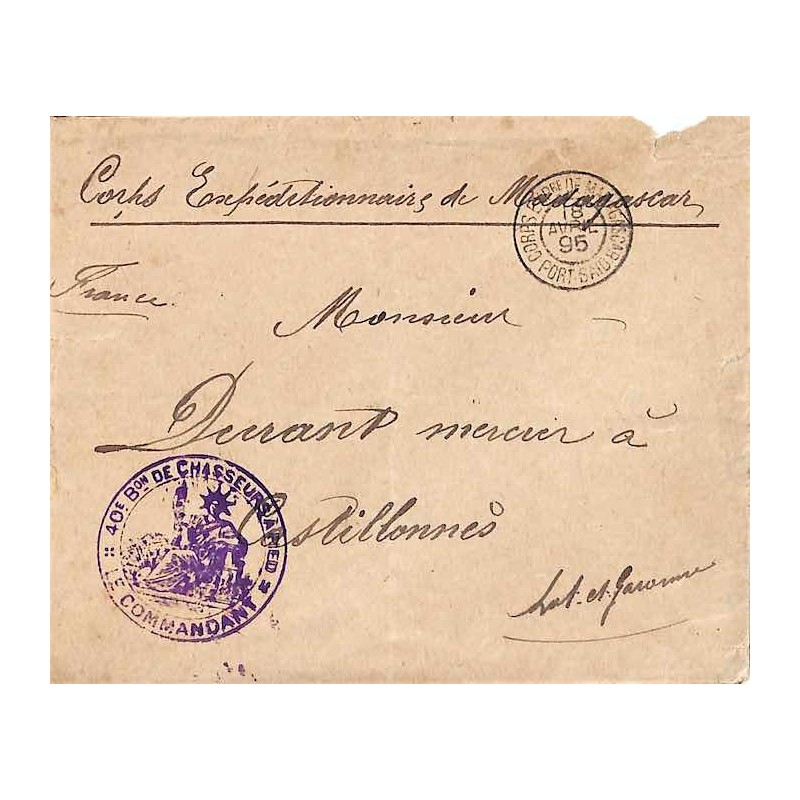 Corps Expéditionnaire de Madagascar
CORPS EXPED. DE MADAGASCAR
18
AVRIL
95
PORT-SAID
France
Monsieur
Durrant mercier à
Castillonnès
Lot-et-Garonne
40E BON DE CHASSEURS A PIED
LE COMMANDANT